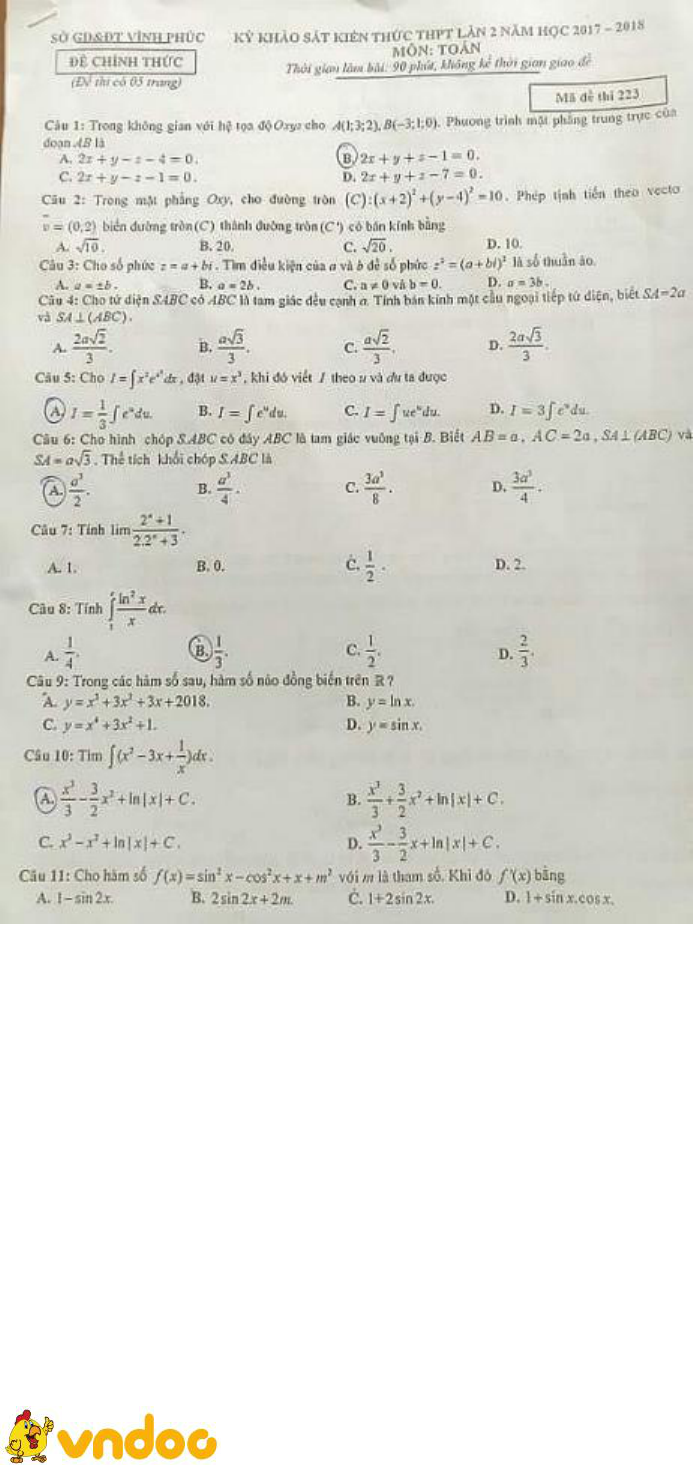 SỞ GD&ĐT VĨNH PHÚC KỲ KHẢO SÁT KIẾN THỨC THPT LẦN 2 NĂM HỌC 2017 – 2018
ĐỀ CHÍNH THỨC MÔN: TOÁN
(Đề thi có 05 trang) Thời gian làm bài: 90 phút, không kể thời gian giao đề
Mã đề thi 223
Câu 1: Trong không gian với hệ tọa độ Oxyz cho A(1;3;2), B(−3;1;0). Phương trình mặt phẳng trung trực của
đoạn AB là
A. 2x + y − z − 4 = 0. B. 2x + y + z − 1 = 0.
C. 2x + y − z − 1 = 0. D. 2x + y + z − 7 = 0.
Câu 2: Trong mặt phẳng Oxy, cho đường tròn (C):(x+2)²+(y−4)²=10. Phép tịnh tiến theo vectơ
v = (0;2) biến đường tròn (C) thành đường tròn (C') có bán kính bằng
A. √10. B. 20. C. √20. D. 10.
Câu 3: Cho số phức z = a + bi. Tìm điều kiện của a và b để số phức z² = (a+bi)² là số thuần ảo.
A. a = ±b. B. a = 2b. C. a ≠ 0 và b = 0. D. a = 3b.
Câu 4: Cho tứ diện SABC có ABC là tam giác đều cạnh a. Tính bán kính mặt cầu ngoại tiếp tứ diện, biết SA=2a
và SA ⊥ (ABC).
A. 2a√2/3. B. a√3/3. C. a√2/3. D. 2a√3/3.
Câu 5: Cho I = ∫x²eˣ³dx, đặt u = x³, khi đó viết I theo u và du ta được
A. I = 1/3 ∫eᵘdu. B. I = ∫eᵘdu. C. I = ∫ueᵘdu. D. I = 3∫eᵘdu.
Câu 6: Cho hình chóp S.ABC có đáy ABC là tam giác vuông tại B. Biết AB = a, AC = 2a, SA ⊥ (ABC) và
SA = a√3. Thể tích khối chóp S.ABC là
A. a³/2. B. a³/4. C. 3a³/8. D. 3a³/4.
Câu 7: Tính lim (2ⁿ+1)/(2.2ⁿ+3).
A. 1. B. 0. C. 1/2. D. 2.
Câu 8: Tính ∫₁ᵉ ln²x/x dx.
A. 1/4. B. 1/3. C. 1/2. D. 2/3.
Câu 9: Trong các hàm số sau, hàm số nào đồng biến trên ℝ?
A. y = x³+3x²+3x+2018. B. y = ln x.
C. y = x⁴+3x²+1. D. y = sin x.
Câu 10: Tìm ∫(x²−3x+1/x)dx.
A. x³/3 − 3/2 x² + ln|x| + C. B. x³/3 + 3/2 x² + ln|x| + C.
C. x³ − x² + ln|x| + C. D. x³/3 − 3/2 x + ln|x| + C.
Câu 11: Cho hàm số f(x) = sin²x − cos²x + x + m² với m là tham số. Khi đó f'(x) bằng
A. 1−sin 2x. B. 2sin 2x+2m. C. 1+2sin 2x. D. 1+sin x.cos x.
vndoc